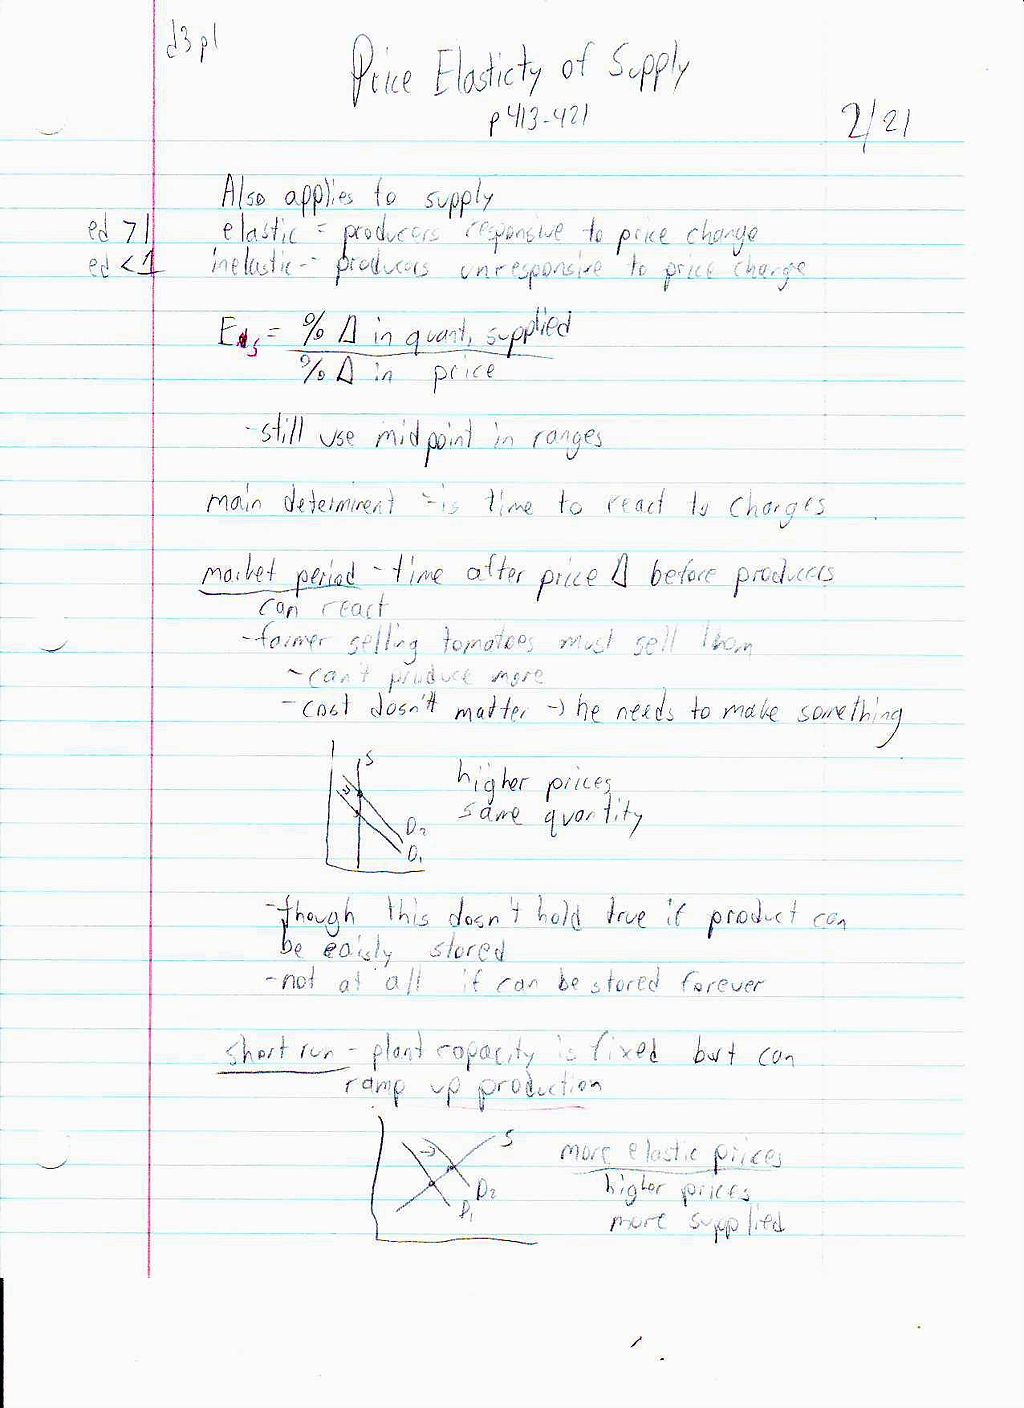 d3 p1
Price Elasticty of Supply
p 413-421
2/21
Also applies to supply
ed >1 elastic = producers responsive to price change
ed <1 inelastic - producers unresponsive to price change
Es = % Δ in quant. supplied
% Δ in price
-still use midpoint in ranges
main determinent - is time to react to changes
market period - time after price Δ before producers
can react
-farmer selling tomatoes must sell them
-can't produce more
-cost dosn't matter → he needs to make something
S
higher prices
same quantity
D2
D1
-though this dosn't hold true if product can
be eaisly stored
-not at all if can be stored forever
short run - plant capacity is fixed but can
ramp up production
S
more elastic prices
D2 higher prices
D1 more supplied